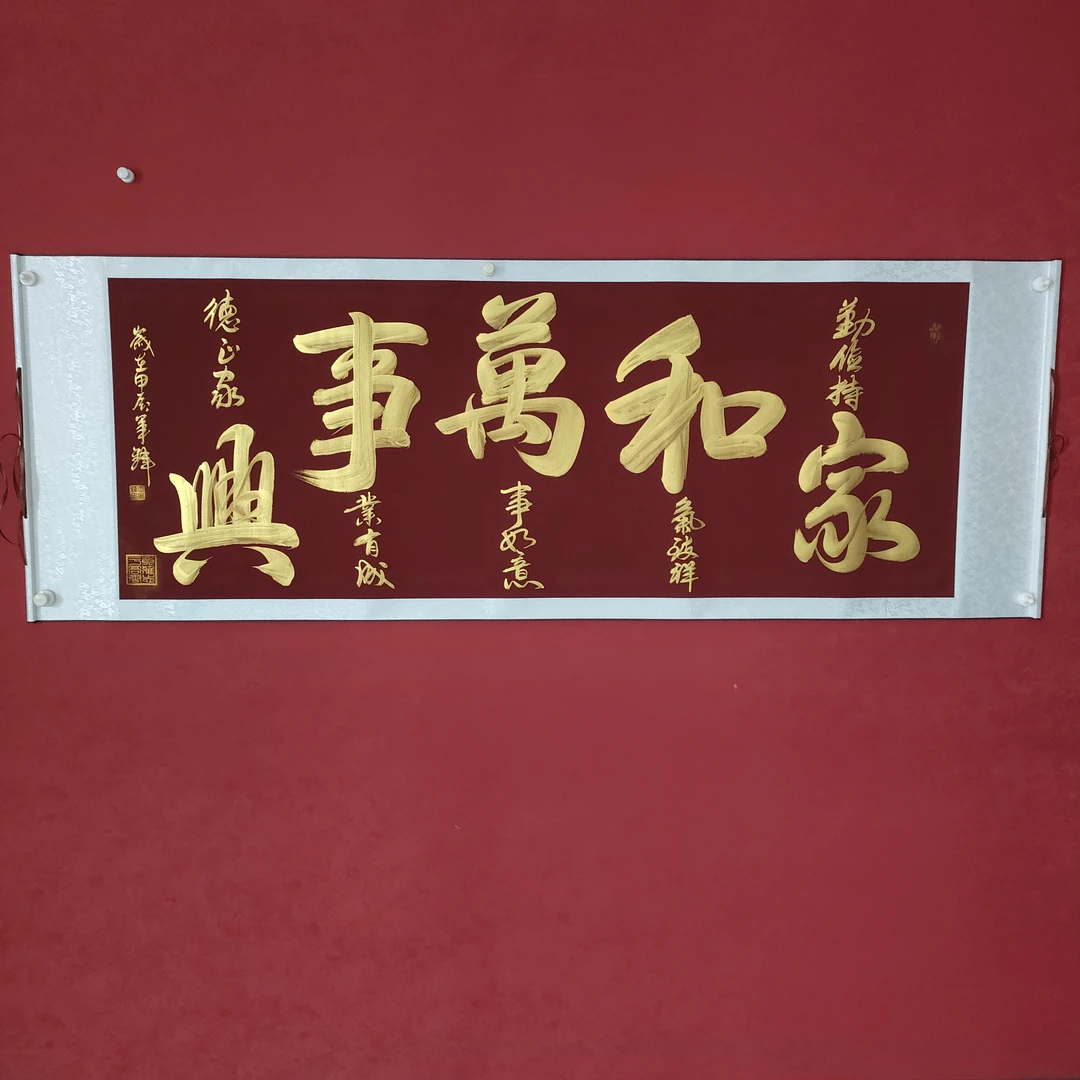 勤儉持家
和氣致祥
萬事如意
事業有成
德正家興
歲在甲辰軍鋒